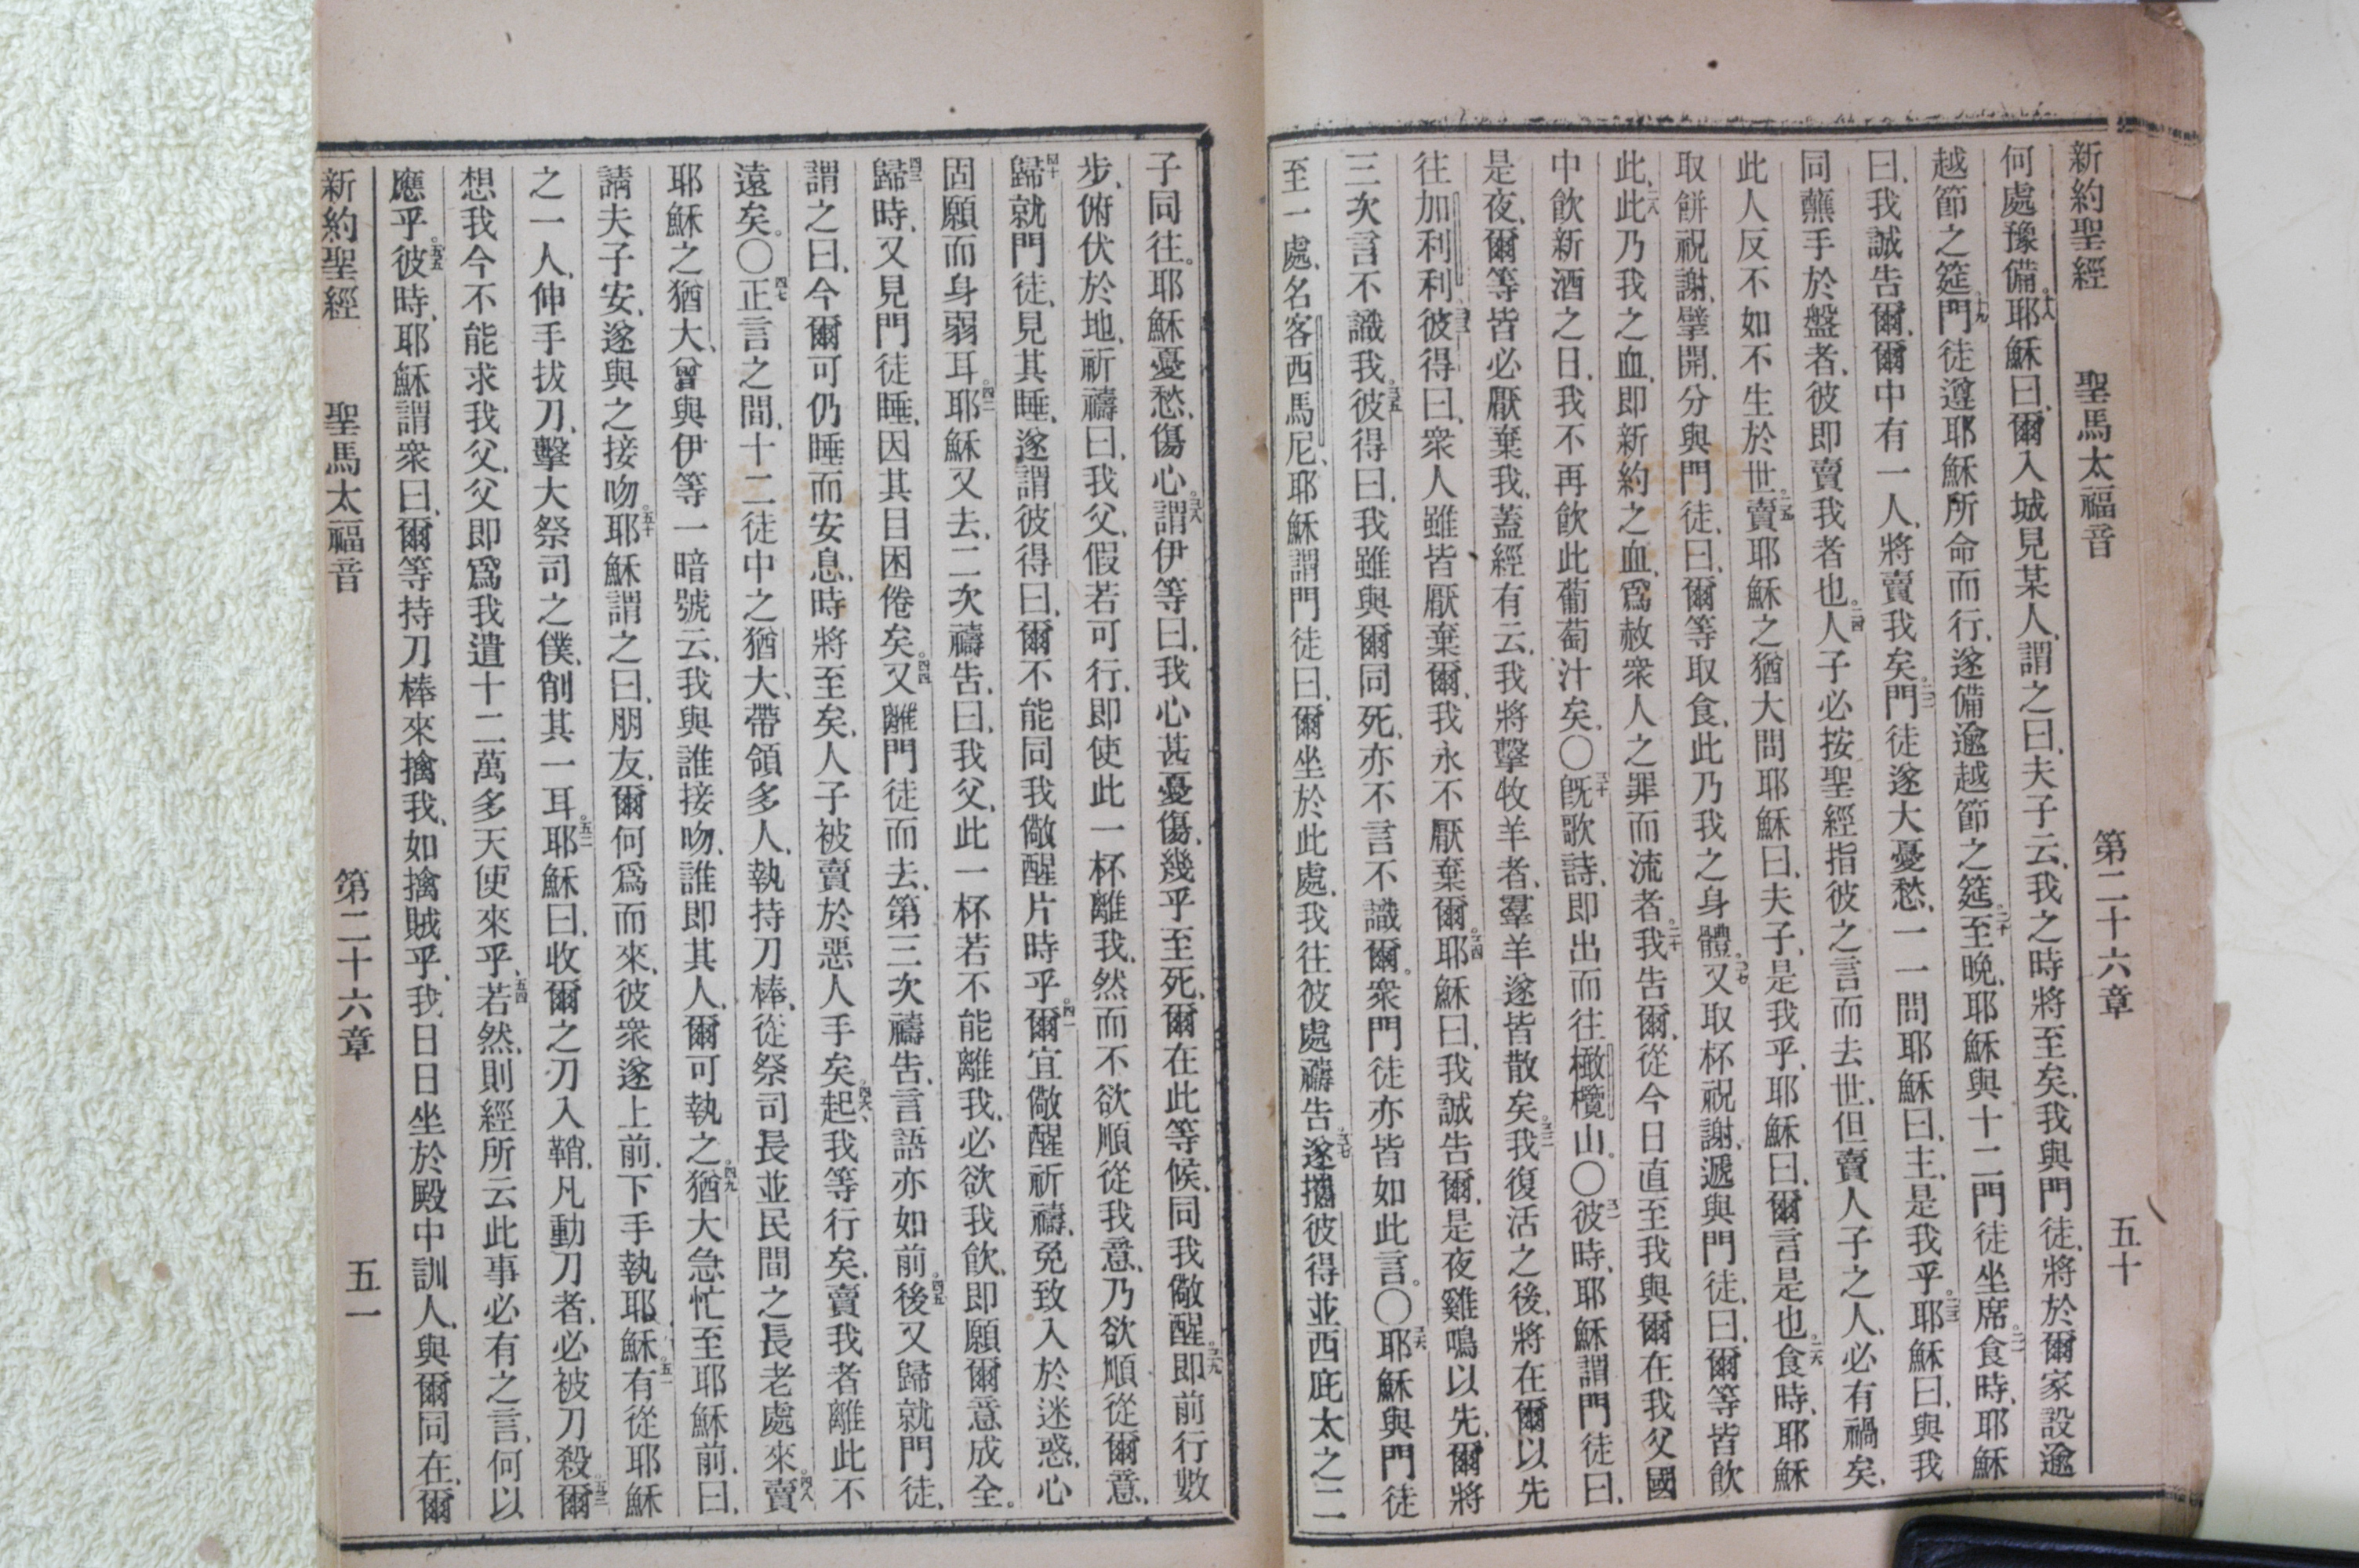 新約聖經 聖馬太福音 第二十六章 五十
何處豫備。十八耶穌曰、爾入城見某人、謂之曰、夫子云、我之時將至矣、我與門徒、將於爾家設逾
越節之筵。十九門徒遵耶穌所命而行、遂備逾越節之筵。二十至晚、耶穌與十二門徒坐席。二一食時、耶穌
曰、我誠告爾、爾中有一人、將賣我矣。二二門徒遂大憂愁、一一問耶穌曰、主、是我乎。二三耶穌曰、與我
同蘸手於盤者、彼即賣我者也。二四人子必按聖經指彼之言而去世、但賣人子之人、必有禍矣、
此人反不如不生於世。二五賣耶穌之猶大問耶穌曰、夫子、是我乎、耶穌曰、爾言是也。二六食時、耶穌
取餅祝謝、擘開、分與門徒、曰、爾等取食、此乃我之身體。二七又取杯祝謝、遞與門徒、曰、爾等皆飲
此、二八此乃我之血、即新約之血、爲赦衆人之罪而流者。二九我告爾、從今日直至我與爾在我父國
中飲新酒之日、我不再飲此葡萄汁矣。〇三十旣歌詩、即出而往橄欖山。〇三一彼時、耶穌謂門徒曰、
是夜、爾等皆必厭棄我、蓋經有云、我將擊牧羊者、羣羊遂皆散矣。三二我復活之後、將在爾以先
往加利利。三三彼得曰、衆人雖皆厭棄爾、我永不厭棄爾。三四耶穌曰、我誠告爾、是夜雞鳴以先、爾將
三次言不識我。三五彼得曰、我雖與爾同死、亦不言不識爾。衆門徒亦皆如此言。〇三六耶穌與門徒
至一處、名客西馬尼、耶穌謂門徒曰、爾坐於此處、我往彼處禱告。三七遂攜彼得並西庇太之二
子同往。耶穌憂愁、傷心。三八謂伊等曰、我心甚憂傷、幾乎至死、爾在此等候、同我儆醒。三九即前行數
步、俯伏於地、祈禱曰、我父、假若可行、即使此一杯離我、然而不欲順從我意、乃欲順從爾意、
四十歸就門徒、見其睡、遂謂彼得曰、爾不能同我儆醒片時乎。四一爾宜儆醒祈禱、免致入於迷惑、心
固願而身弱耳。四二耶穌又去、二次禱告、曰、我父、此一杯若不能離我、必欲我飲、即願爾意成全。
四三歸時、又見門徒睡、因其目困倦矣。四四又離門徒而去、第三次禱告、言語亦如前。四五後又歸就門徒、
謂之曰、今爾可仍睡而安息、時將至矣、人子被賣於惡人手矣。四六起、我等行矣、賣我者離此不
遠矣。〇四七正言之間、十二徒中之猶大、帶領多人、執持刀棒、從祭司長並民間之長老處來。四八賣
耶穌之猶大、曾與伊等一暗號云、我與誰接吻、誰即其人、爾可執之。四九猶大急忙至耶穌前、曰、
請夫子安、遂與之接吻。五十耶穌謂之曰、朋友、爾何爲而來、彼衆遂上前、下手執耶穌。五一有從耶穌
之一人、伸手拔刀、擊大祭司之僕、削其一耳。五二耶穌曰、收爾之刀入鞘、凡動刀者、必被刀殺。五三爾
想我今不能求我父、父即爲我遣十二萬多天使來乎。五四若然、則經所云此事必有之言、何以
應乎。五五彼時、耶穌謂衆曰、爾等持刀棒來擒我、如擒賊乎、我日日坐於殿中訓人、與爾同在、爾
新約聖經 聖馬太福音 第二十六章 五一